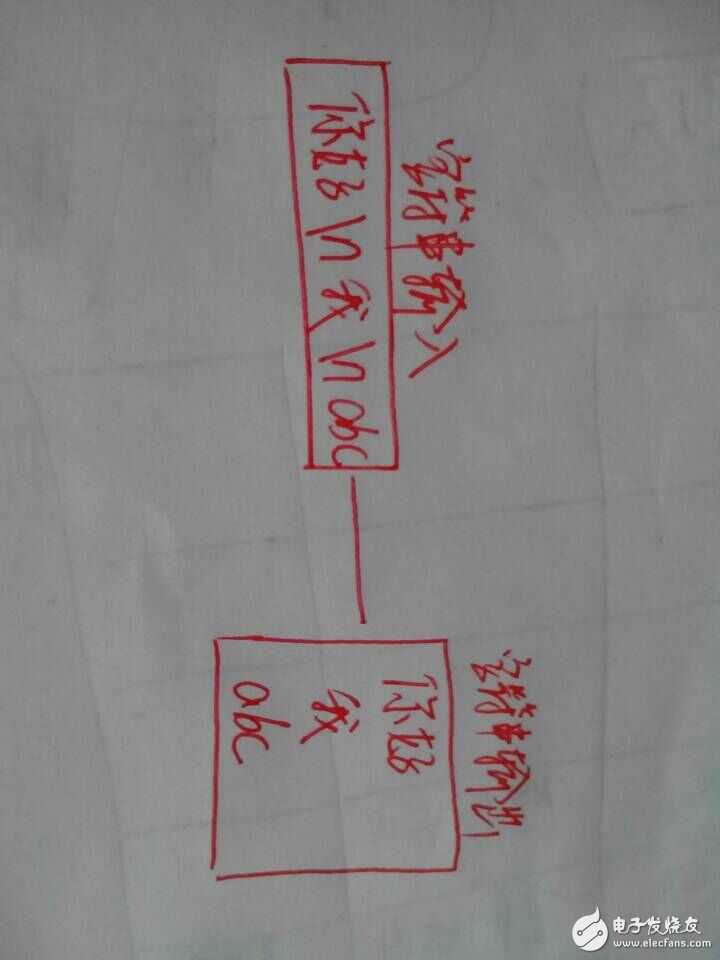 字符串输入
你好\n我\nabc
字符串输出
你好
我
abc
电子发烧友
www.elecfans.com